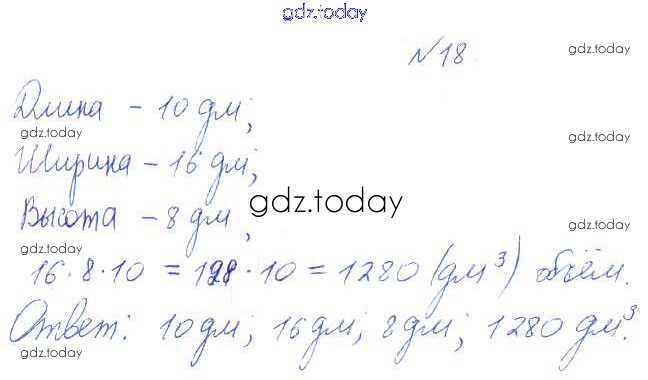 gdz.today
№18.
gdz.today
Длина - 10 дм;
gdz.today
gdz.today
Ширина - 16 дм;
gdz.today
Высота - 8 дм;
gdz.today
gdz.today
16·8·10 = 128·10 = 1280 (дм³) объём.
Ответ: 10 дм; 16 дм; 8 дм; 1280 дм³.
gdz.today
gdz.today